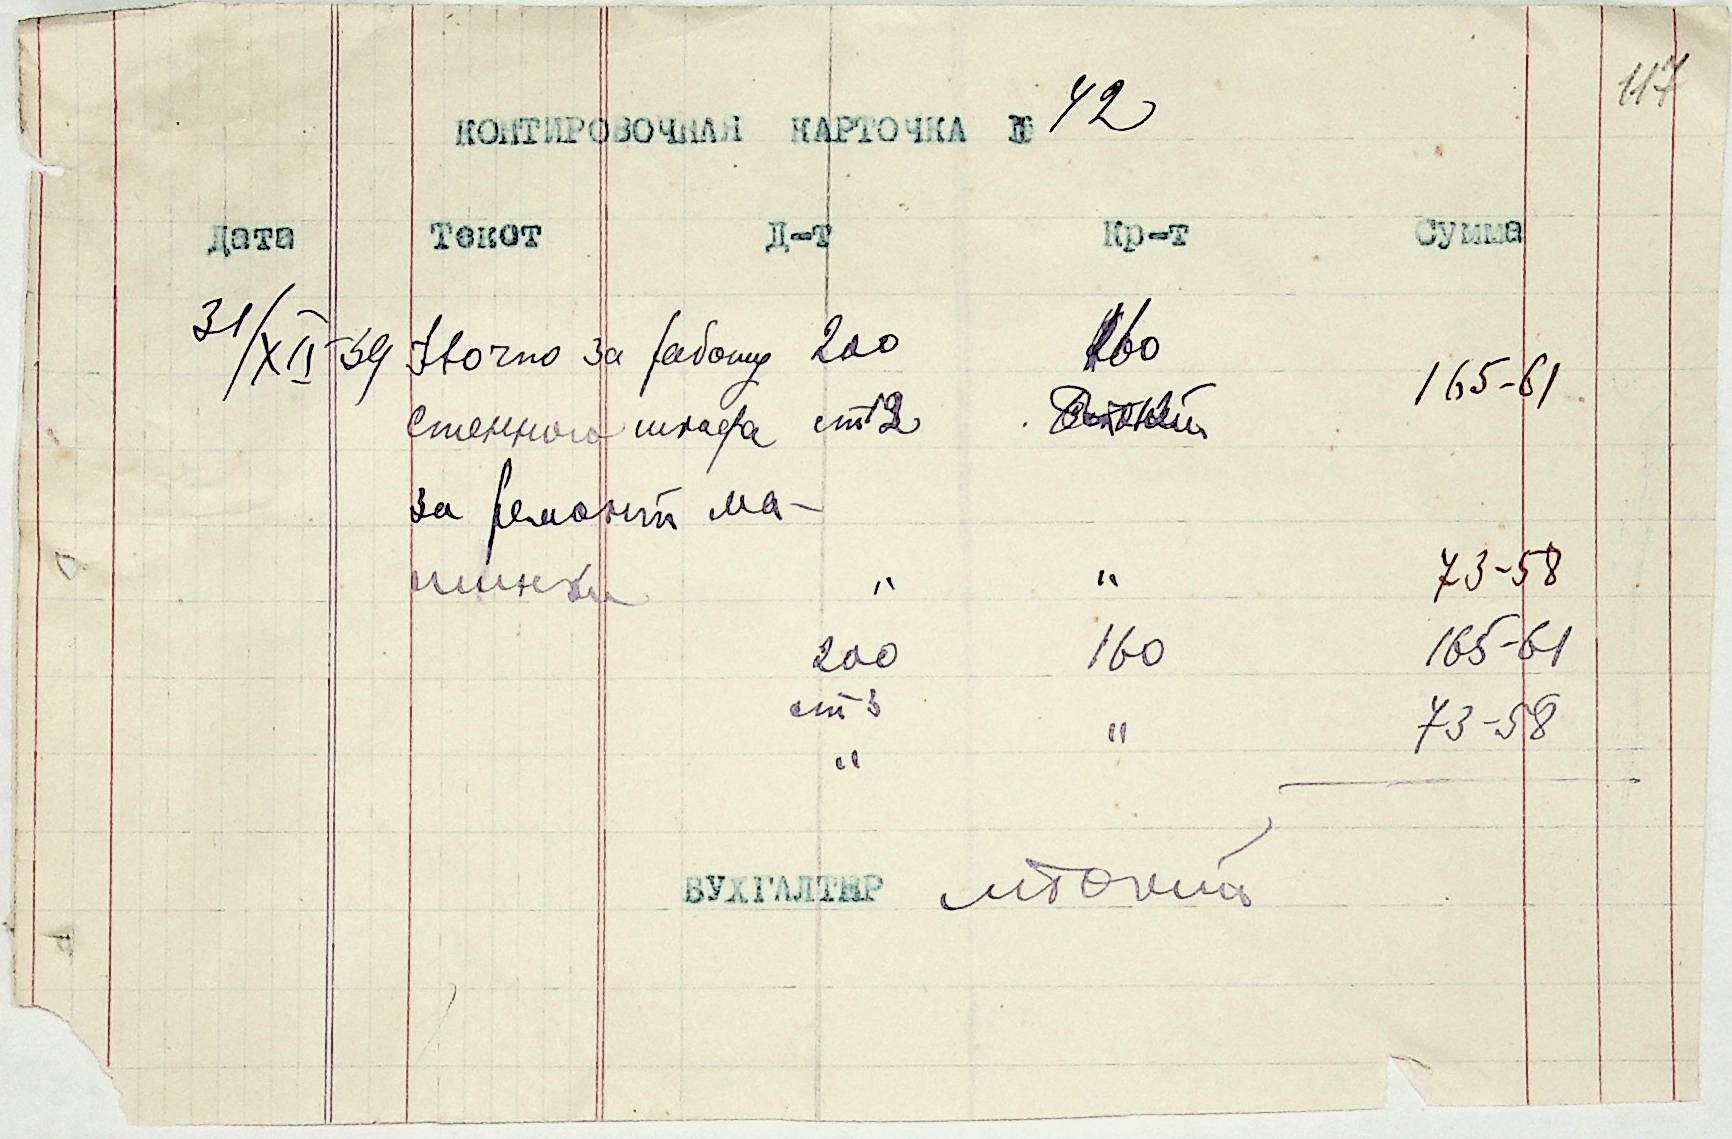 117
КОНТИРОВОЧНАЯ КАРТОЧКА № 42
Дата Текст Д-т Кр-т Сумма
31/XII-39 за работу 200 160 165-61
стенного шкафа ст 2
за ремонт ма-
шинки " " 73-58
200 160 165-61
ст 3 " 73-58
"
БУХГАЛТЕР